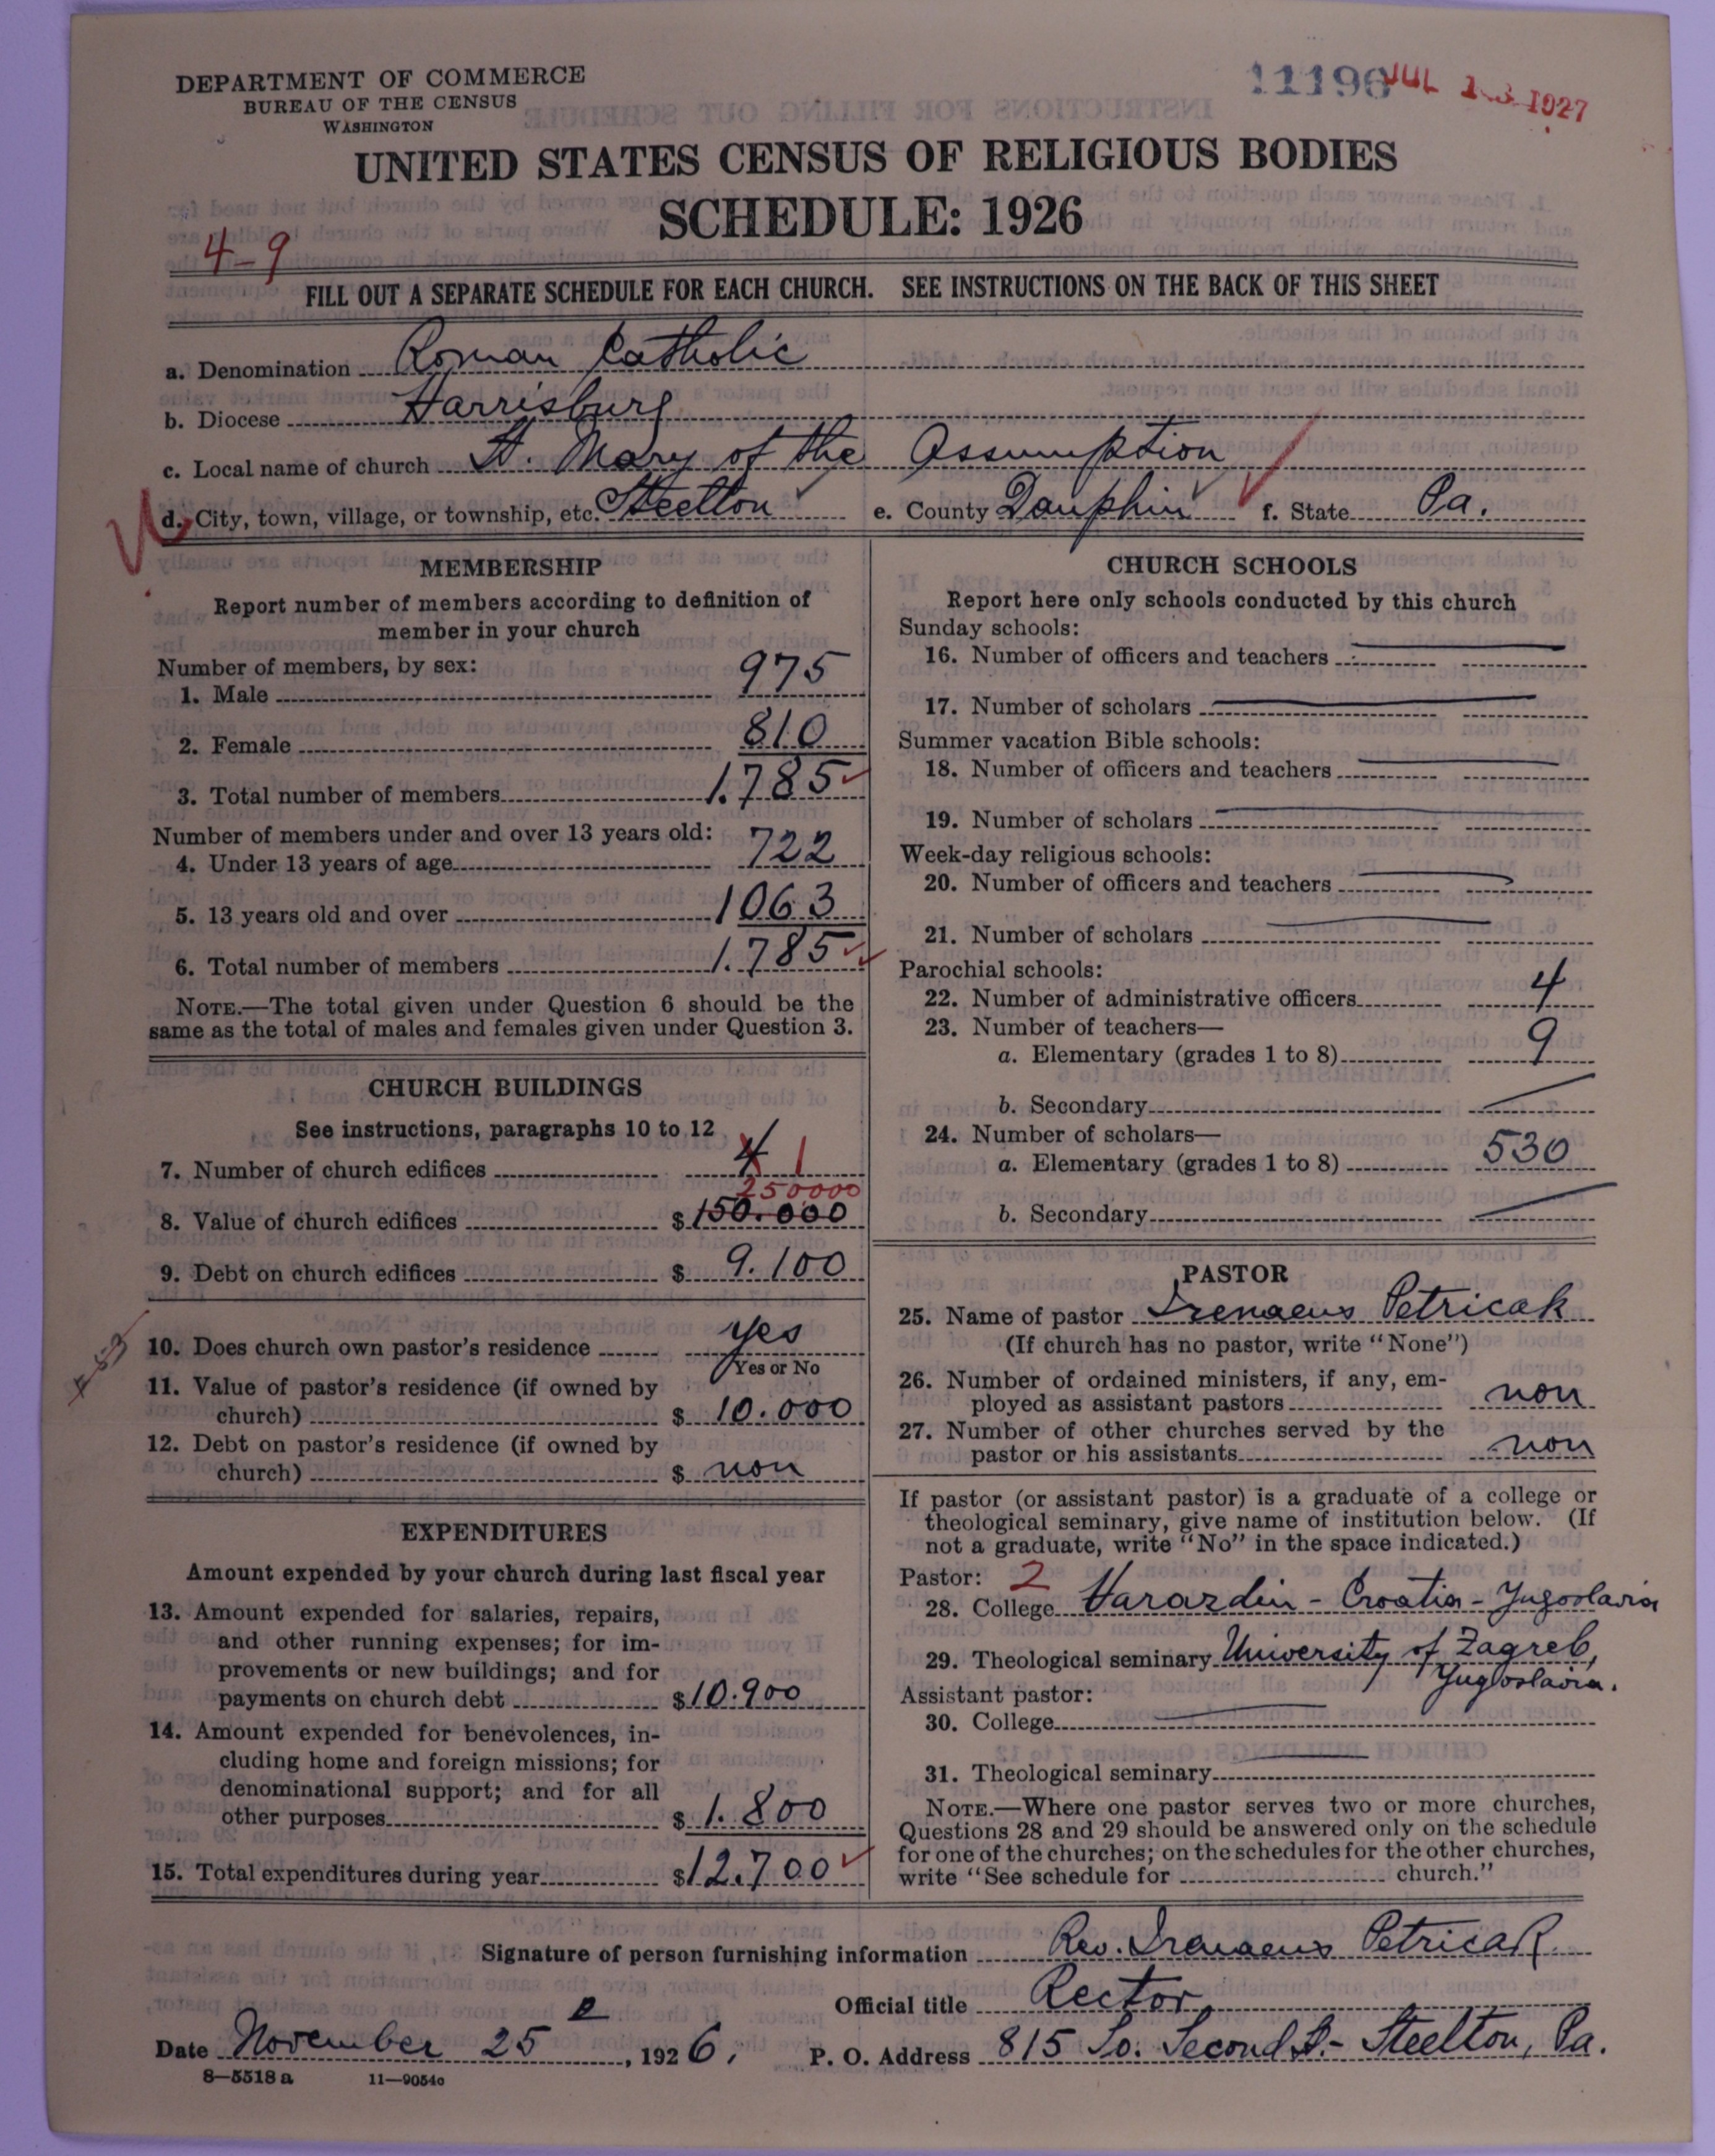 DEPARTMENT OF COMMERCE
BUREAU OF THE CENSUS
WASHINGTON
11196 JUL 13 1927
UNITED STATES CENSUS OF RELIGIOUS BODIES
SCHEDULE: 1926
4-9
FILL OUT A SEPARATE SCHEDULE FOR EACH CHURCH. SEE INSTRUCTIONS ON THE BACK OF THIS SHEET
a. Denomination Roman Catholic
b. Diocese Harrisburg
c. Local name of church St. Mary of the Assumption
d. City, town, village, or township, etc. Steelton e. County Dauphin f. State Pa.
MEMBERSHIP
Report number of members according to definition of
member in your church
Number of members, by sex:
1. Male 975
2. Female 810
3. Total number of members 1.785
Number of members under and over 13 years old:
4. Under 13 years of age 722
5. 13 years old and over 1063
6. Total number of members 1.785
NOTE.—The total given under Question 6 should be the
same as the total of males and females given under Question 3.
CHURCH BUILDINGS
See instructions, paragraphs 10 to 12
7. Number of church edifices 4 1
250000
8. Value of church edifices $ 150.000
9. Debt on church edifices $ 9.100
10. Does church own pastor's residence yes
Yes or No
11. Value of pastor's residence (if owned by
church) $ 10.000
12. Debt on pastor's residence (if owned by
church) $ non
EXPENDITURES
Amount expended by your church during last fiscal year
13. Amount expended for salaries, repairs,
and other running expenses; for im-
provements or new buildings; and for
payments on church debt $10.900
14. Amount expended for benevolences, in-
cluding home and foreign missions; for
denominational support; and for all
other purposes $ 1.800
15. Total expenditures during year $12.700
CHURCH SCHOOLS
Report here only schools conducted by this church
Sunday schools:
16. Number of officers and teachers
17. Number of scholars
Summer vacation Bible schools:
18. Number of officers and teachers
19. Number of scholars
Week-day religious schools:
20. Number of officers and teachers
21. Number of scholars
Parochial schools:
22. Number of administrative officers 4
23. Number of teachers—
a. Elementary (grades 1 to 8) 9
b. Secondary
24. Number of scholars—
a. Elementary (grades 1 to 8) 530
b. Secondary
PASTOR
25. Name of pastor Irenaeus Petricak
(If church has no pastor, write "None")
26. Number of ordained ministers, if any, em-
ployed as assistant pastors non
27. Number of other churches served by the
pastor or his assistants non
If pastor (or assistant pastor) is a graduate of a college or
theological seminary, give name of institution below. (If
not a graduate, write "No" in the space indicated.)
Pastor: 2
28. College Varazdin - Croatia - Jugoslavia
29. Theological seminary University of Zagreb,
Jugoslavia.
Assistant pastor:
30. College
31. Theological seminary
NOTE.—Where one pastor serves two or more churches,
Questions 28 and 29 should be answered only on the schedule
for one of the churches; on the schedules for the other churches,
write "See schedule for church."
Signature of person furnishing information Rev. Irenaeus Petricak
Official title Rector
Date November 25 , 1926. P. O. Address 815 So. Second St.- Steelton, Pa.
8—5518a 11—9054c